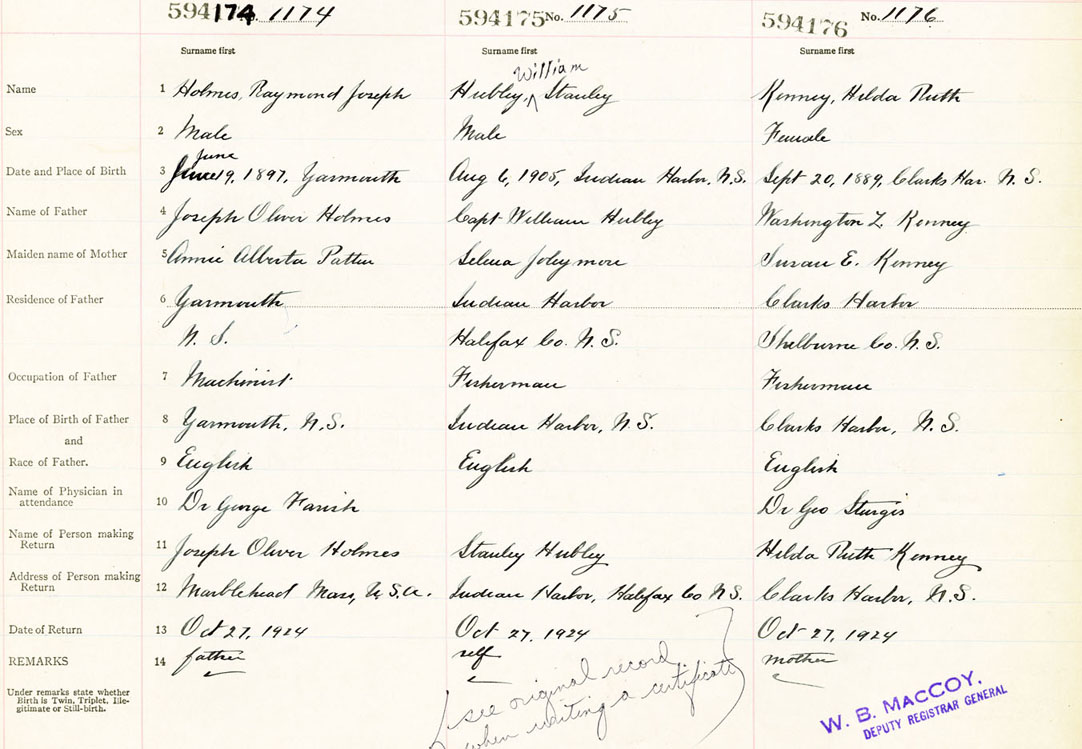 594174 No. 1174 594175 No. 1175 594176 No. 1176
Surname first Surname first Surname first
William
Name 1 Holmes, Raymond Joseph Hubley, Stanley Kenney, Hilda Ruth
Sex 2 Male Male Female
June
Date and Place of Birth 3 June 19, 1897, Yarmouth Aug 6, 1905, Indian Harbor, N.S. Sept 20, 1889, Clarks Har. N.S.
Name of Father 4 Joseph Oliver Holmes Capt William Hubley Washington L. Kenney
Maiden name of Mother 5 Annie Alberta Patten Selena Joleymore Susan E. Kenney
Residence of Father 6 Yarmouth Indian Harbor Clarks Harbor
N.S. Halifax Co. N.S. Shelburne Co. N.S.
Occupation of Father 7 Machinist Fisherman Fisherman
Place of Birth of Father 8 Yarmouth, N.S. Indian Harbor, N.S. Clarks Harbor, N.S.
and
Race of Father. 9 English English English
Name of Physician in
attendance 10 Dr George Farish Dr Geo Sturgis
Name of Person making
Return 11 Joseph Oliver Holmes Stanley Hubley Hilda Ruth Kenney
Address of Person making
Return 12 Marblehead Mass, U.S.A. Indian Harbor, Halifax Co N.S. Clarks Harbor, N.S.
Date of Return 13 Oct 27, 1924 Oct 27, 1924 Oct 27, 1924
REMARKS 14 father self mother
see original record
when writing a certificate
Under remarks state whether
Birth is Twin, Triplet, Ille-
gitimate or Still-birth.
W. B. MacCOY,
DEPUTY REGISTRAR GENERAL